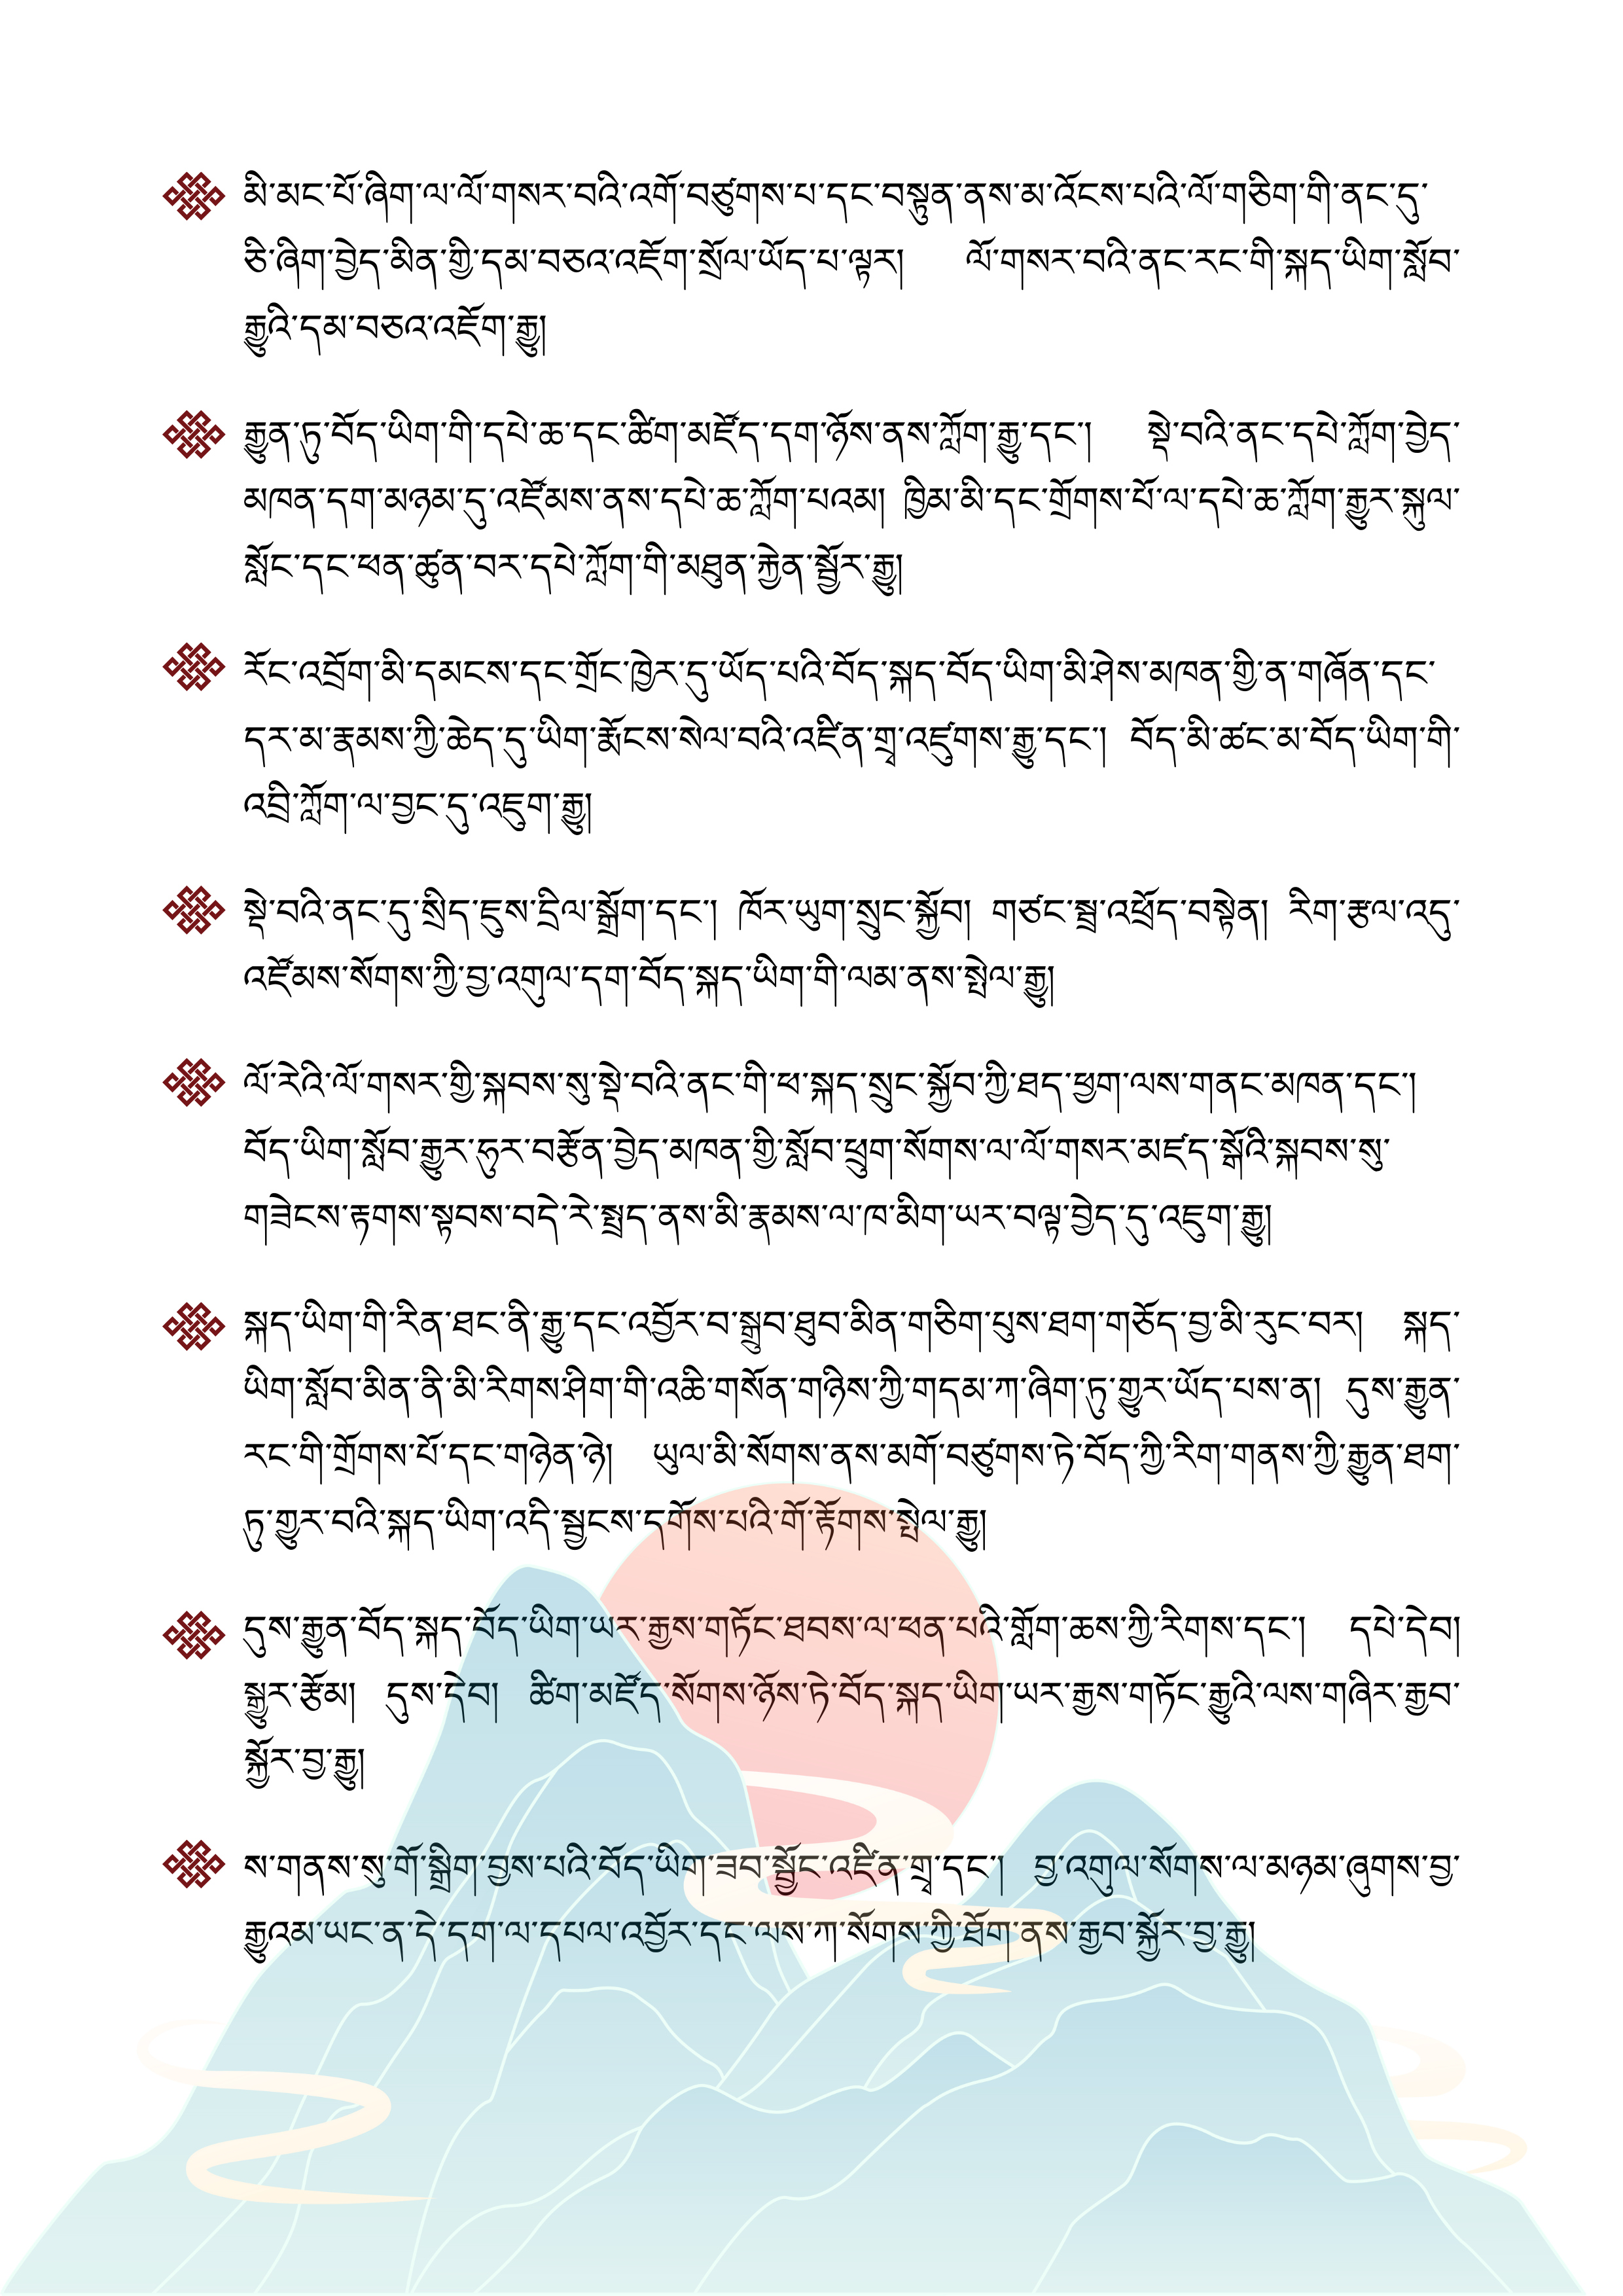 མི་མང་པོ་ཞིག་ལ་ལོ་གསར་བའི་འགོ་བཙུགས་པ་དང་བསྟུན་ནས་མ་འོངས་པའི་ལོ་གཅིག་གི་ནང་དུ་
ཅི་ཞིག་བྱེད་མིན་གྱི་དམ་བཅའ་འཇོག་སྲོལ་ཡོད་པ་ལྟར། ལོ་གསར་བའི་ནང་རང་གི་སྐད་ཡིག་སློབ་
རྒྱུའི་དམ་བཅའ་འཇོག་རྒྱུ།
རྒྱུན་ཏུ་བོད་ཡིག་གི་དཔེ་ཆ་དང་ཚིག་མཛོད་དག་ཉོས་ནས་ཀློག་རྒྱུ་དང་། སྡེ་བའི་ནང་དཔེ་ཀློག་བྱེད་
མཁན་དག་མཉམ་དུ་འཛོམས་ནས་དཔེ་ཆ་ཀློག་པའམ། ཁྱིམ་མི་དང་གྲོགས་པོ་ལ་དཔེ་ཆ་ཀློག་རྒྱུར་སྐུལ་
སློང་དང་ཕན་ཚུན་བར་དཔེ་ཀློག་གི་མཐུན་རྐྱེན་སྦྱོར་རྒྱུ།
རོང་འབྲོག་མི་དམངས་དང་གྲོང་ཁྱེར་དུ་ཡོད་པའི་བོད་སྐད་བོད་ཡིག་མི་ཤེས་མཁན་གྱི་ན་གཞོན་དང་
དར་མ་རྣམས་ཀྱི་ཆེད་དུ་ཡིག་རྨོངས་སེལ་བའི་འཛིན་གྲྭ་འཛུགས་རྒྱུ་དང་། བོད་མི་ཚང་མ་བོད་ཡིག་གི་
འབྲི་ཀློག་ལ་བྱང་དུ་འཇུག་རྒྱུ།
སྡེ་བའི་ནང་དུ་སྲིད་ཇུས་དྲིལ་སྒྲོག་དང་། ཁོར་ཡུག་སྲུང་སྐྱོབ། གཙང་སྦྲ་འཕྲོད་བསྟེན། རིག་རྩལ་འདུ་
འཛོམས་སོགས་ཀྱི་བྱ་འགུལ་དག་བོད་སྐད་ཡིག་གི་ལམ་ནས་སྤེལ་རྒྱུ།
ལོ་རེའི་ལོ་གསར་གྱི་སྐབས་སུ་སྡེ་བའི་ནང་གི་ཕ་སྐད་སྲུང་སྐྱོབ་ཀྱི་ཐད་ཕྱག་ལས་གནང་མཁན་དང་།
བོད་ཡིག་སློབ་རྒྱུར་ཧུར་བརྩོན་བྱེད་མཁན་གྱི་སློབ་ཕྲུག་སོགས་ལ་ལོ་གསར་མཛད་སྒོའི་སྐབས་སུ་
གཟེངས་རྟགས་སྟབས་བདེ་རེ་སྤྲད་ནས་མི་རྣམས་ལ་ཁ་མིག་ཡར་བལྟ་བྱེད་དུ་འཇུག་རྒྱུ།
སྐད་ཡིག་གི་རིན་ཐང་ནི་རྒྱུ་དང་འབྱོར་བ་སྒྲུབ་ཐུབ་མིན་གཅིག་པུས་ཐག་གཅོད་བྱ་མི་རུང་བར། སྐད་
ཡིག་སློབ་མིན་ནི་མི་རིགས་ཤིག་གི་འཆི་གསོན་གཉིས་ཀྱི་གདམ་ཀ་ཞིག་ཏུ་གྱུར་ཡོད་པས་ན། དུས་རྒྱུན་
རང་གི་གྲོགས་པོ་དང་གཉེན་ཉེ། ཡུལ་མི་སོགས་ནས་མགོ་བཙུགས་ཏེ་བོད་ཀྱི་རིག་གནས་ཀྱི་རྒྱུན་ཐག་
ཏུ་གྱུར་བའི་སྐད་ཡིག་འདི་སྦྱངས་དགོས་པའི་གོ་རྟོགས་སྤེལ་རྒྱུ།
དུས་རྒྱུན་བོད་སྐད་བོད་ཡིག་ཡར་རྒྱས་གཏོང་ཐབས་ལ་ཕན་པའི་གློག་ཆས་ཀྱི་རིགས་དང་། དཔེ་དེབ།
སྒྱུར་རྩོམ། དུས་དེབ། ཚིག་མཛོད་སོགས་ཉོས་ཏེ་བོད་སྐད་ཡིག་ཡར་རྒྱས་གཏོང་རྒྱུའི་ལས་གཞིར་རྒྱབ་
སྐྱོར་བྱ་རྒྱུ།
ས་གནས་སུ་གོ་སྒྲིག་བྱས་པའི་བོད་ཡིག་ཟབ་སྦྱོང་འཛིན་གྲྭ་དང་། བྱ་འགུལ་སོགས་ལ་མཉམ་ཞུགས་བྱ་
རྒྱུའམ་ཡང་ན་དེ་དག་ལ་དཔལ་འབྱོར་དང་ལས་ཀ་སོགས་ཀྱི་ཐོག་ནས་རྒྱབ་སྐྱོར་བྱ་རྒྱུ།